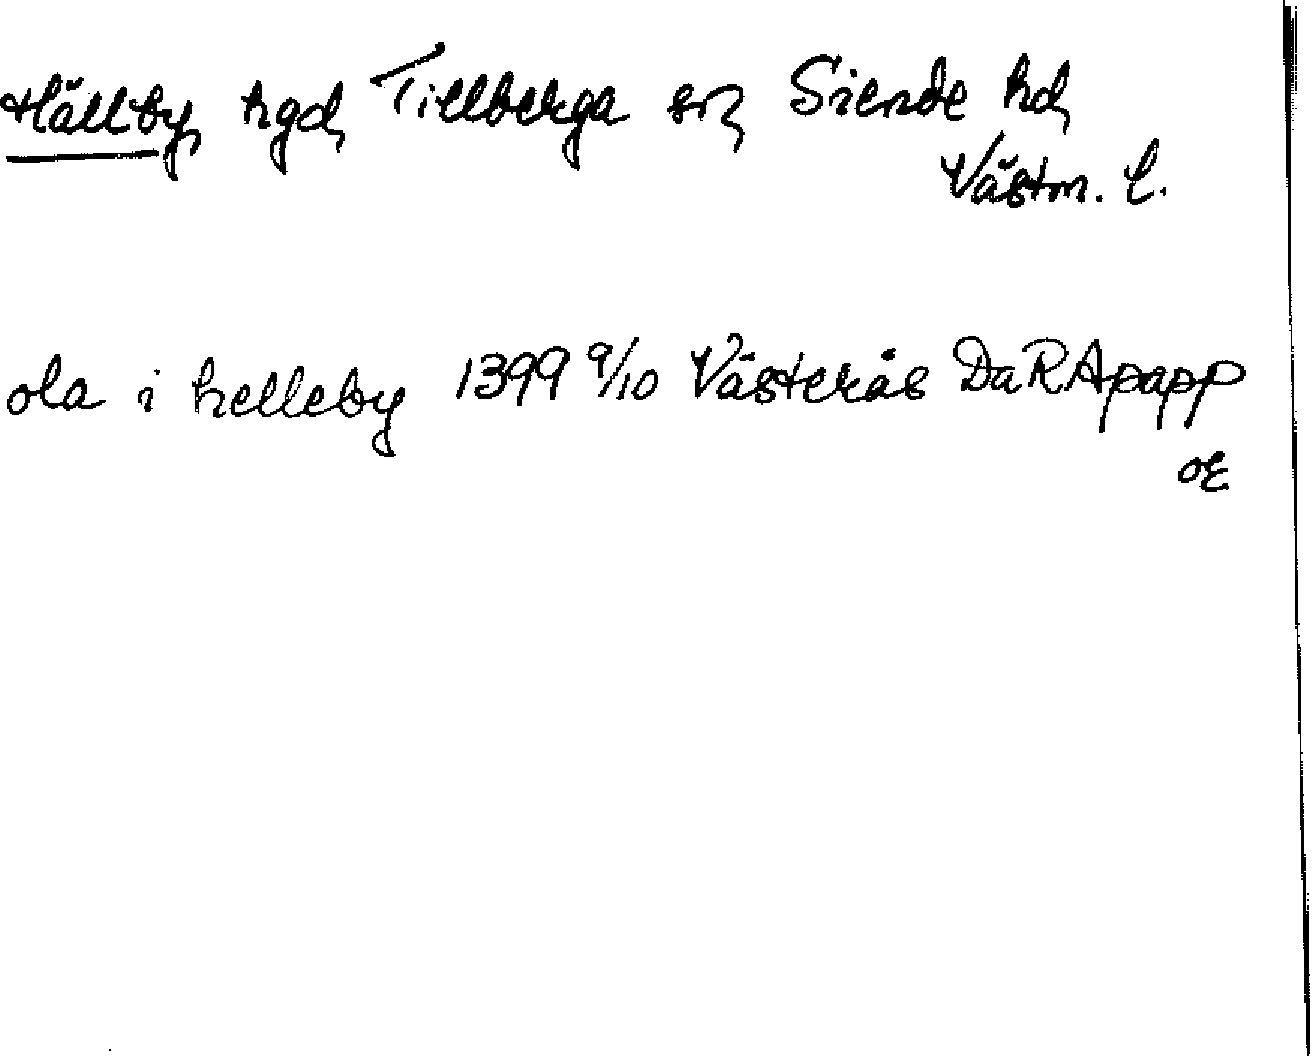 Hällby, hgd, Tillberga sn, Siende hd,
Västm. l.
ola i helleby 1399 9/10 Västerås DaRApapp
oE